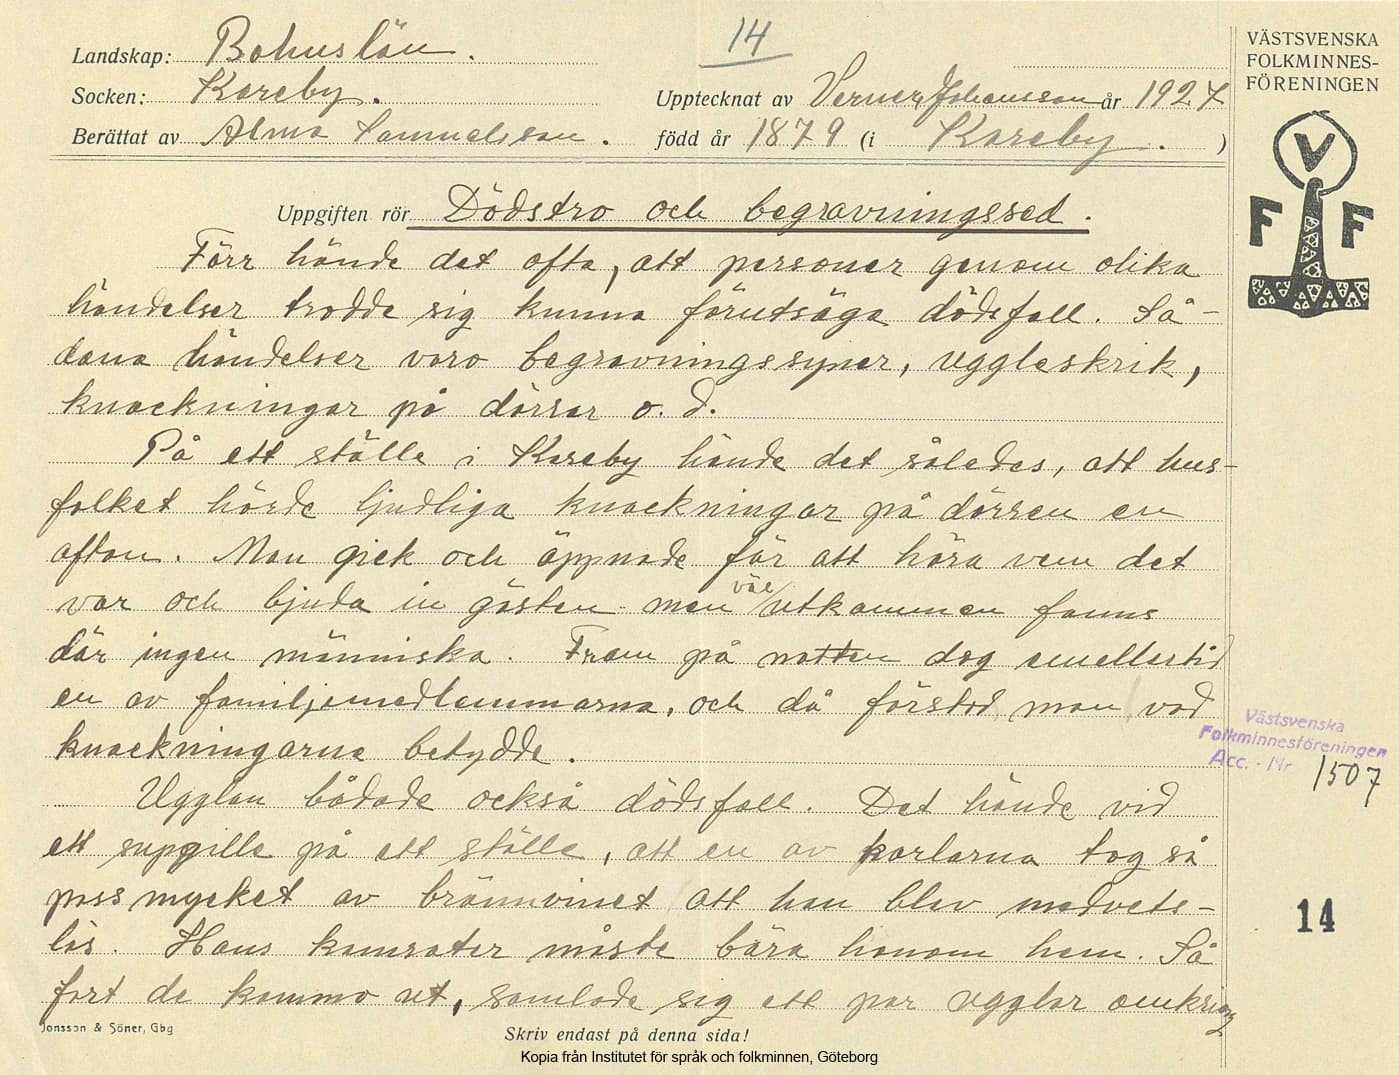 14
VÄSTSVENSKA
FOLKMINNES-
FÖRENINGEN
V
F F
Landskap: Bohuslän.
Socken: Kareby. Upptecknat av Verner Johansson år 1927
Berättat av Alma Samuelsson. född år 1879 (i Kareby. )
Uppgiften rör Dödstro och begravningssed.
Förr hände det ofta, att personer genom olika
händelser trodde sig kunna förutsäga dödsfall. Så-
dana händelser voro begravningssyner, uggleskrik,
knackningar på dörrar o. d.
På ett ställe i Kareby hände det således, att hus-
folket hörde ljudliga knackningar på dörren en
afton. Man gick och öppnade för att höra vem det
var och bjuda in gästen men väl utkommen fanns
där ingen människa. Fram på natten dog emellertid
en av familjemedlemmarna, och då förstod man vad
knackningarna betydde.
Ugglan bådade också dödsfall. Det hände vid
ett supgille på ett ställe, att en av karlarna tog så
pass mycket av brännvinet att han blev medvets-
lös. Hans kamrater måste bära honom hem. Så
fort de kommo ut, samlade sig ett par ugglor omkring
Västsvenska
Folkminnesföreningen
Acc. - Nr 1507
14
Jonsson & Söner, Gbg
Skriv endast på denna sida!
Kopia från Institutet för språk och folkminnen, Göteborg